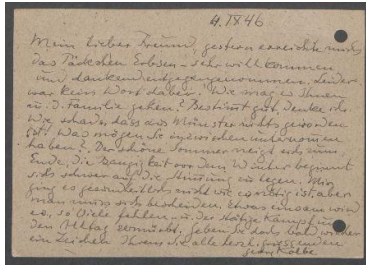 4. IX 46
Mein lieber Freund, gestern erreichte mich
das Päckchen Erbsen – sehr willkommen
und dankend entgegengenommen. Leider
war kein Wort dabei. Wie mag es Ihnen
u. d. Familie gehen? Bestimmt gut, denke ich.
Wie schade, dass aus Münster nichts geworden
ist! Was mögen Sie inzwischen unternommen
haben? Der schöne Sommer neigt sich zum
Ende, die Bangigkeit vor dem Winter beginnt
sich schwer auf die Stimmung zu legen. Mir
ging es gesundheitlich nicht wie es nötig ist, aber
man muss sich bescheiden. Etwas einsam wird
es, so Viele fehlen – u. der Kampf um
den Alltag ermüdet. Geben Sie doch bald wieder
ein Zeichen Ihrem Sie alle herzl. grüssenden
Georg Kolbe